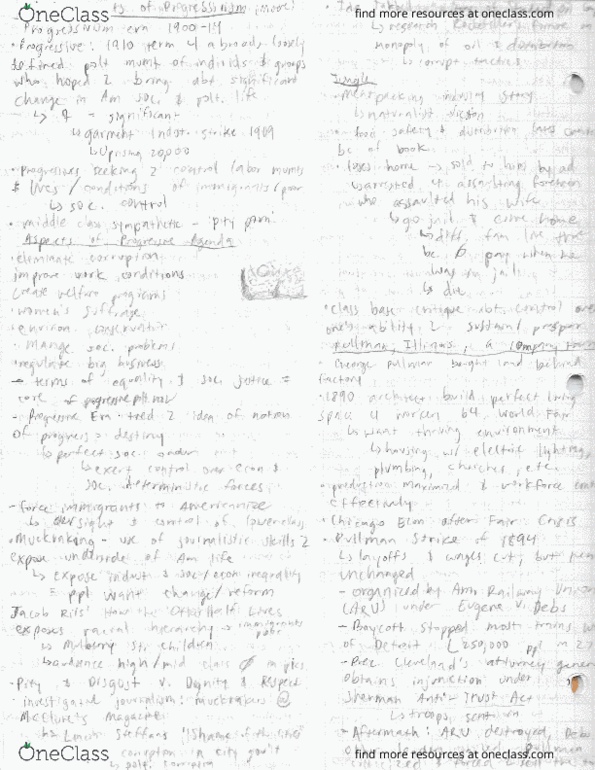 OneClass
find more resources at oneclass.com
of Progressivism (move)
Progressivism era 1900-14
• Progressive: 1910 term 4 a broadly loosely
defined polt mvmt of individs & groups
who hoped 2 bring abt significant
change in Am soc. & polt. life
significant
garment indst. strike 1909
Uprising 20,000
• Progressives seeking 2 control labor mvmts
& lives / conditions of immigrants/poor
↳ soc. control
• middle class sympathetic - "pity
Aspects of Progressive Agenda
• eliminate corruption
improve work conditions
create welfare programs
• women's suffrage
• environ. conservation
• mange soc. problems
• regulate big business
→ terms of equality & soc. justice =
core of progressive polt mvt
- Progressive Era - tied 2 idea of notion
of progress & destiny
↳ perfect soc. order
↳ exert control over econ &
soc. deterministic forces
- force immigrants to Americanize
↳ oversight & control of lowerclass
• Muckraking - use of journalistic skills 2
expose underside of Am life
↳ expose indust & soc/econ inequality
= ppl want change/reform
Jacob Riis' How the Other Half Lives
exposes racial hierarchy → immigrants
poor
↳ Mulberry str. children
↳ audience high/mid class Ø in pics
• Pity & Disgust v. Dignity & Respect
• investigative journalism: muckrakers @
McClure's Magazine
↳ Lincoln Steffans "Shame of the Cities"
corruption in city gov't
↳ polt. corruption
↳ research Rockefeller
monopoly of oil & distribution
↳ corrupt tactics
Jungle
• Meatpacking industry story
↳ naturalist
• food safety & distribution laws
bc of book
• loses home → sold to him by ad
↳ arrested 4 assaulting foreman
who assaulted his wife
↳ go jail & come home
↳ diff. fam live there
bc Ø pay when he
was in jail
↳ die
• class base critique abt control over
one's ability 2 sustain/prosper
Pullman, Illinois, a company town
• George Pullman bought land behind
factory
• 1890 architect build perfect living
space 4 b4 World Fair
↳ want thriving environment
↳ housing w/ electric lighting,
plumbing, churches, etc.
• production maximized & workforce
effectively
• Chicago Econ after Fair Crisis
• Pullman Strike of 1894
↳ layoffs & wages cut, but
unchanged
- organized by Am Railway Union
(ARU) under Eugene V. Debs
- Boycott stopped most trains
of Detroit 250,000 ppl in 27
- Prez Cleveland's attorney general
obtains injunction under
Sherman Anti-Trust Act
↳ troops sent in
• Aftermath: ARU destroyed, Debs
Pullman
OneClass
find more resources at oneclass.com